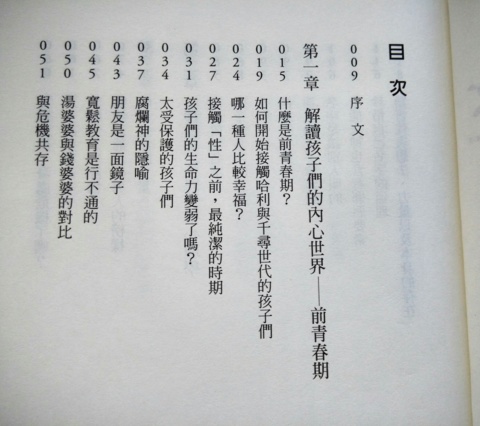 目 次
009 序 文
第一章 解讀孩子們的內心世界——前青春期
015 什麼是前青春期？
019 如何開始接觸哈利與千尋世代的孩子們
024 哪一種人比較幸福？
027 接觸「性」之前，最純潔的時期
031 孩子們的生命力變弱了嗎？
034 太受保護的孩子們
037 腐爛神的隱喻
043 朋友是一面鏡子
045 寬鬆教育是行不通的
050 湯婆婆與錢婆婆的對比
051 與危機共存